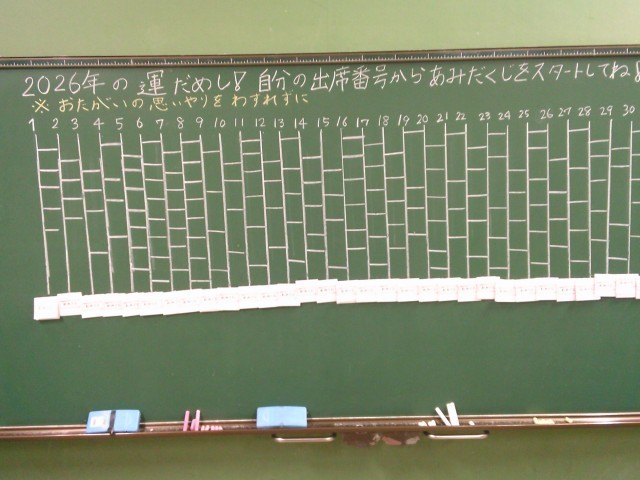 2026年の運だめし! 自分の出席番号からあみだくじをスタートしてね!
※ おたがいの思いやりをわすれずに
1 2 3 4 5 6 7 8 9 10 11 12 13 14 15 16 17 18 19 20 21 22 23 24 25 26 27 28 29 30